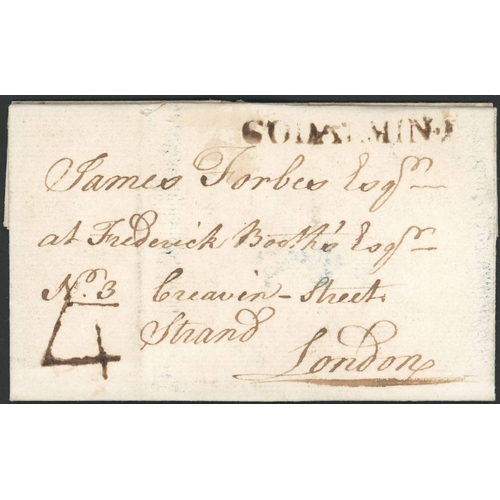 GODALMIN
James Forbes Esqr.
at Frederick Booth's Esqr.
No. 3 Creavin-Street
Strand
4
London